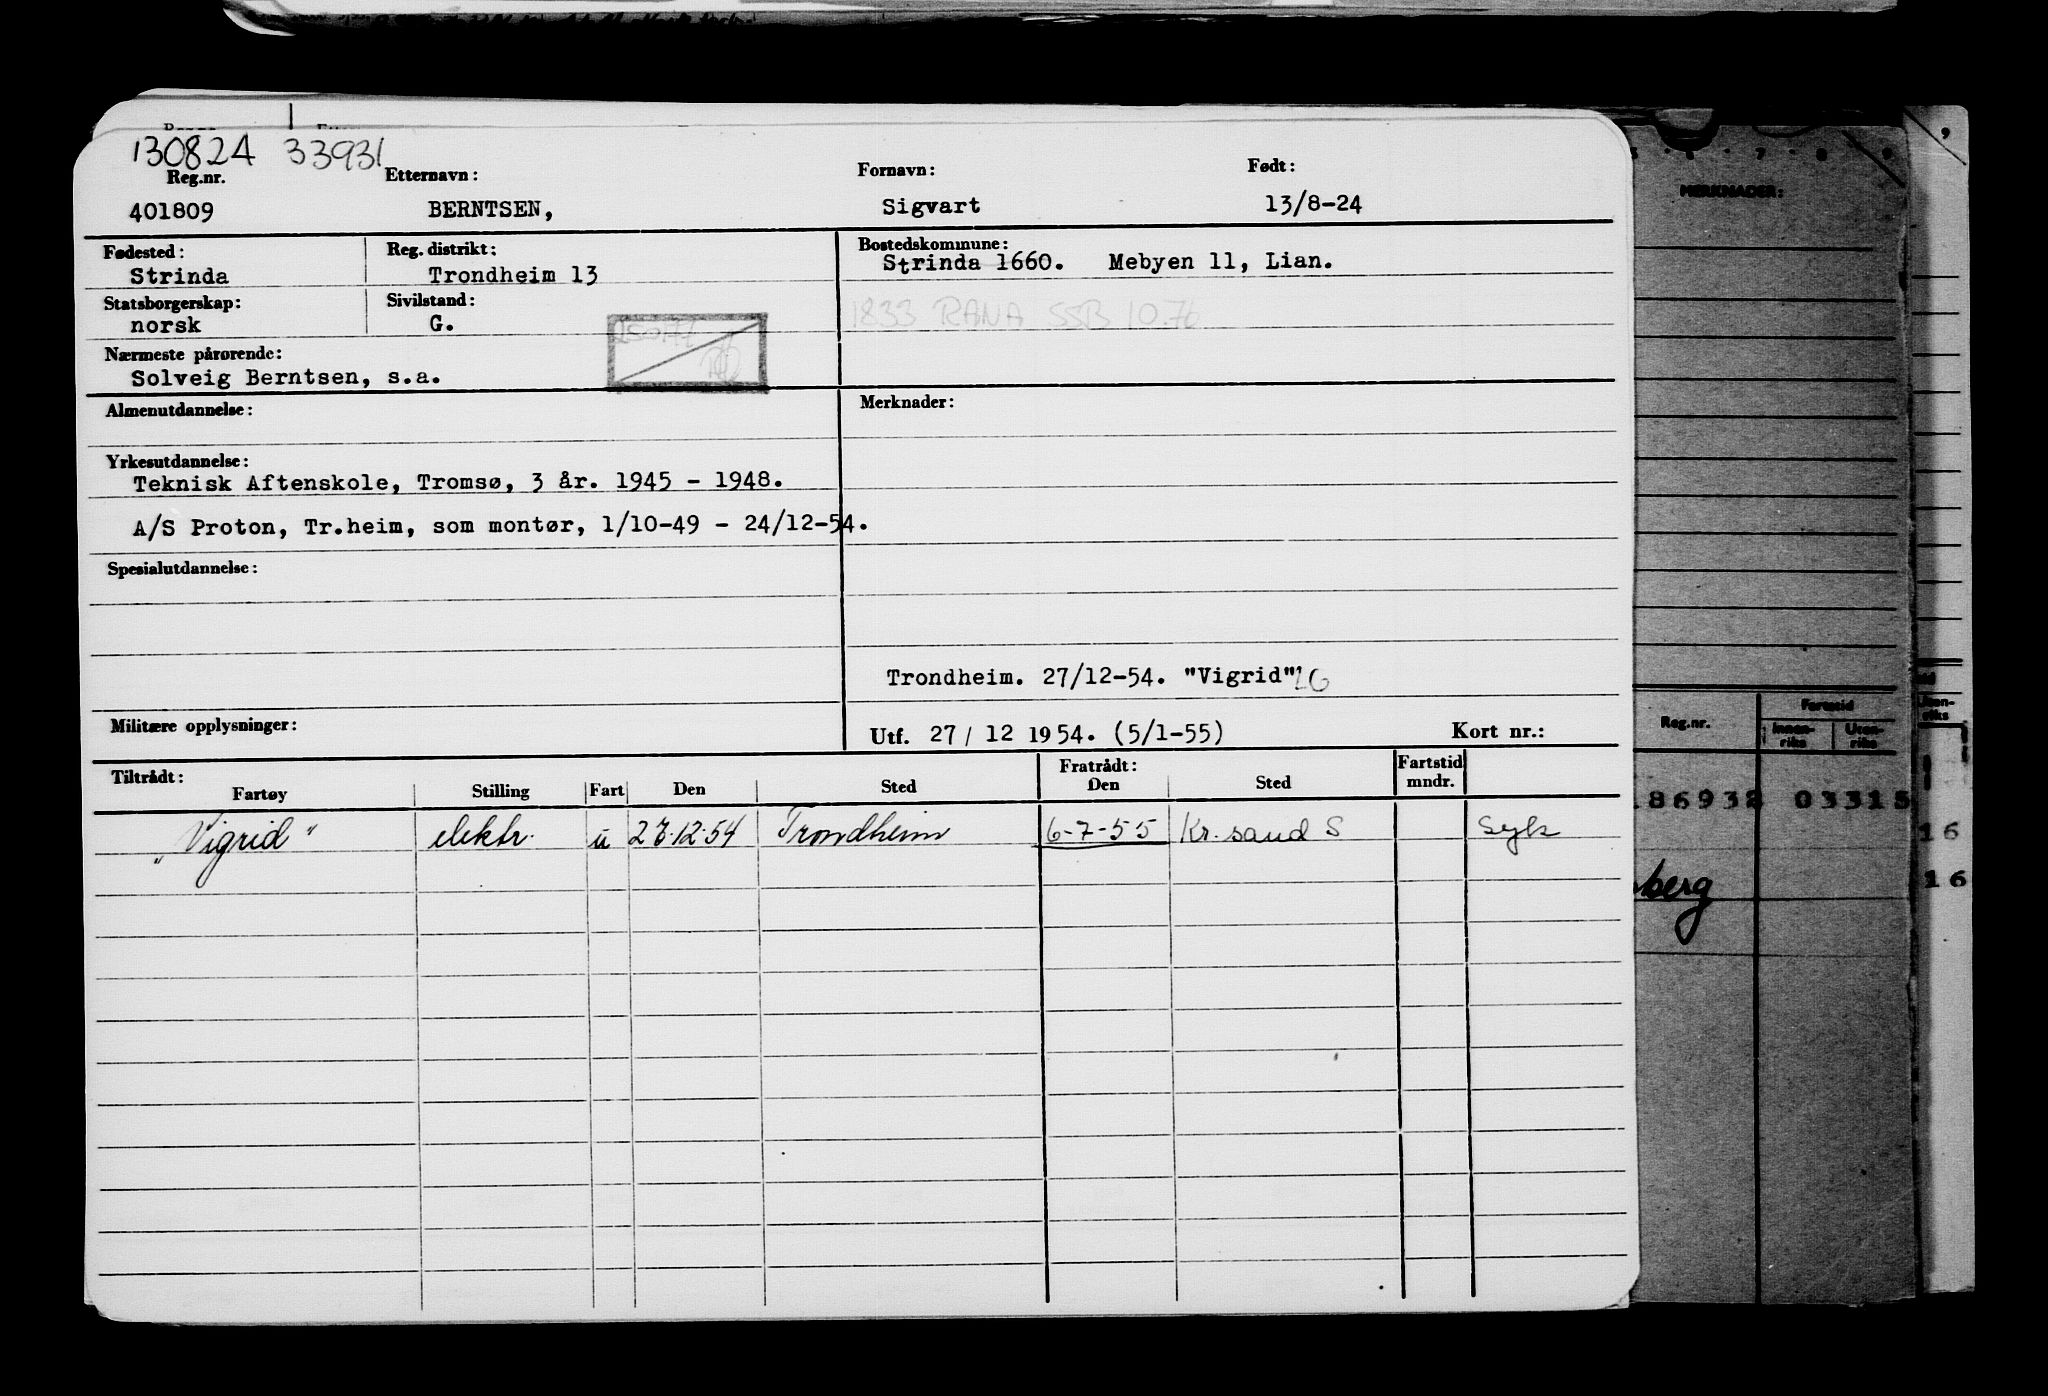 130824 33931
Reg.nr. Etternavn: Fornavn: Født:
401809 BERNTSEN, Sigvart 13/8-24
Fødested: Reg. distrikt: Bostedskommune:
Strinda Trondheim 13 Strinda 1660. Mebyen 11, Lian.
Statsborgerskap: Sivilstand:
norsk G.
1833 RANA SSB 10.76
Nærmeste pårørende:
Solveig Berntsen, s.a.
Almenutdannelse: Merknader:
Yrkesutdannelse:
Teknisk Aftenskole, Tromsø, 3 år. 1945 - 1948.
A/S Proton, Tr.heim, som montør, 1/10-49 - 24/12-54.
Spesialutdannelse:
Trondheim. 27/12-54. "Vigrid"
Militære opplysninger: Utf. 27/12 1954. (5/1-55) Kort nr.:
Tiltrådt: Fratrådt: Fartstid
Fartøy Stilling Fart Den Sted Den Sted mndr.
"Vigrid" elektr. u 27.12.54 Trondheim 6-7-55 Kr.sand S Syk
9
6 7 8 9
MERKNADER:
Reg.nr. Fartstid
Innen-riks Uten-riks
Uten-riks
186932 03315
16
berg 16